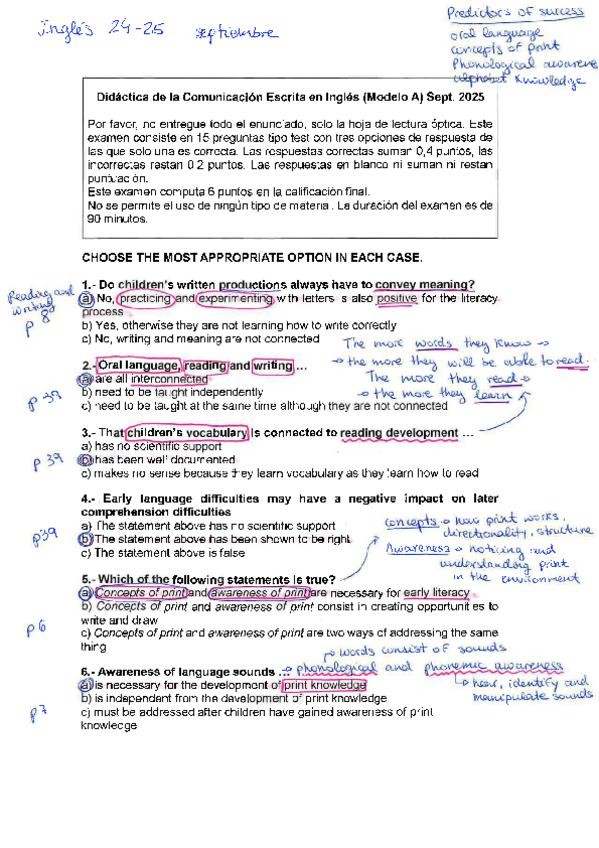 inglés 24-25 septiembre
Predictors of success
oral language
concepts of print
Phonological awarene
alphabet knowledge
Didáctica de la Comunicación Escrita en Inglés (Modelo A) Sept. 2025
Por favor, no entregue todo el enunciado, solo la hoja de lectura óptica. Este
examen consiste en 15 preguntas tipo test con tres opciones de respuesta de
las que solo una es correcta. Las respuestas correctas suman 0,4 puntos, las
incorrectas restan 0.2 puntos. Las respuestas en blanco ni suman ni restan
puntuación.
Este examen computa 6 puntos en la calificación final.
No se permite el uso de ningún tipo de material. La duración del examen es de
90 minutos.
CHOOSE THE MOST APPROPRIATE OPTION IN EACH CASE.
1.- Do children's written productions always have to convey meaning?
Reading and writing p 8
a) No, practicing and experimenting with letters is also positive for the literacy
process
b) Yes, otherwise they are not learning how to write correctly
c) No, writing and meaning are not connected
The more words they know →
→ the more they will be able to read.
The more they read →
→ the more they learn
2.- Oral language, reading and writing ...
a) are all interconnected
p 39
b) need to be taught independently
c) need to be taught at the same time although they are not connected
3.- That children's vocabulary is connected to reading development ...
a) has no scientific support
p 39
b) has been well documented
c) makes no sense because they learn vocabulary as they learn how to read
4.- Early language difficulties may have a negative impact on later
comprehension difficulties
a) The statement above has no scientific support
p39
b) The statement above has been shown to be right
c) The statement above is false
Concepts → how print works,
directionality, structure
Awareness → noticing and
understanding print
in the environment
5.- Which of the following statements is true?
a) Concepts of print and awareness of print are necessary for early literacy
b) Concepts of print and awareness of print consist in creating opportunities to
write and draw
p6
c) Concepts of print and awareness of print are two ways of addressing the same
thing
words consist of sounds
6.- Awareness of language sounds ... → phonological and phonemic awareness
hear, identify and
manipulate sounds
a) is necessary for the development of print knowledge
b) is independent from the development of print knowledge
p7
c) must be addressed after children have gained awareness of print
knowledge